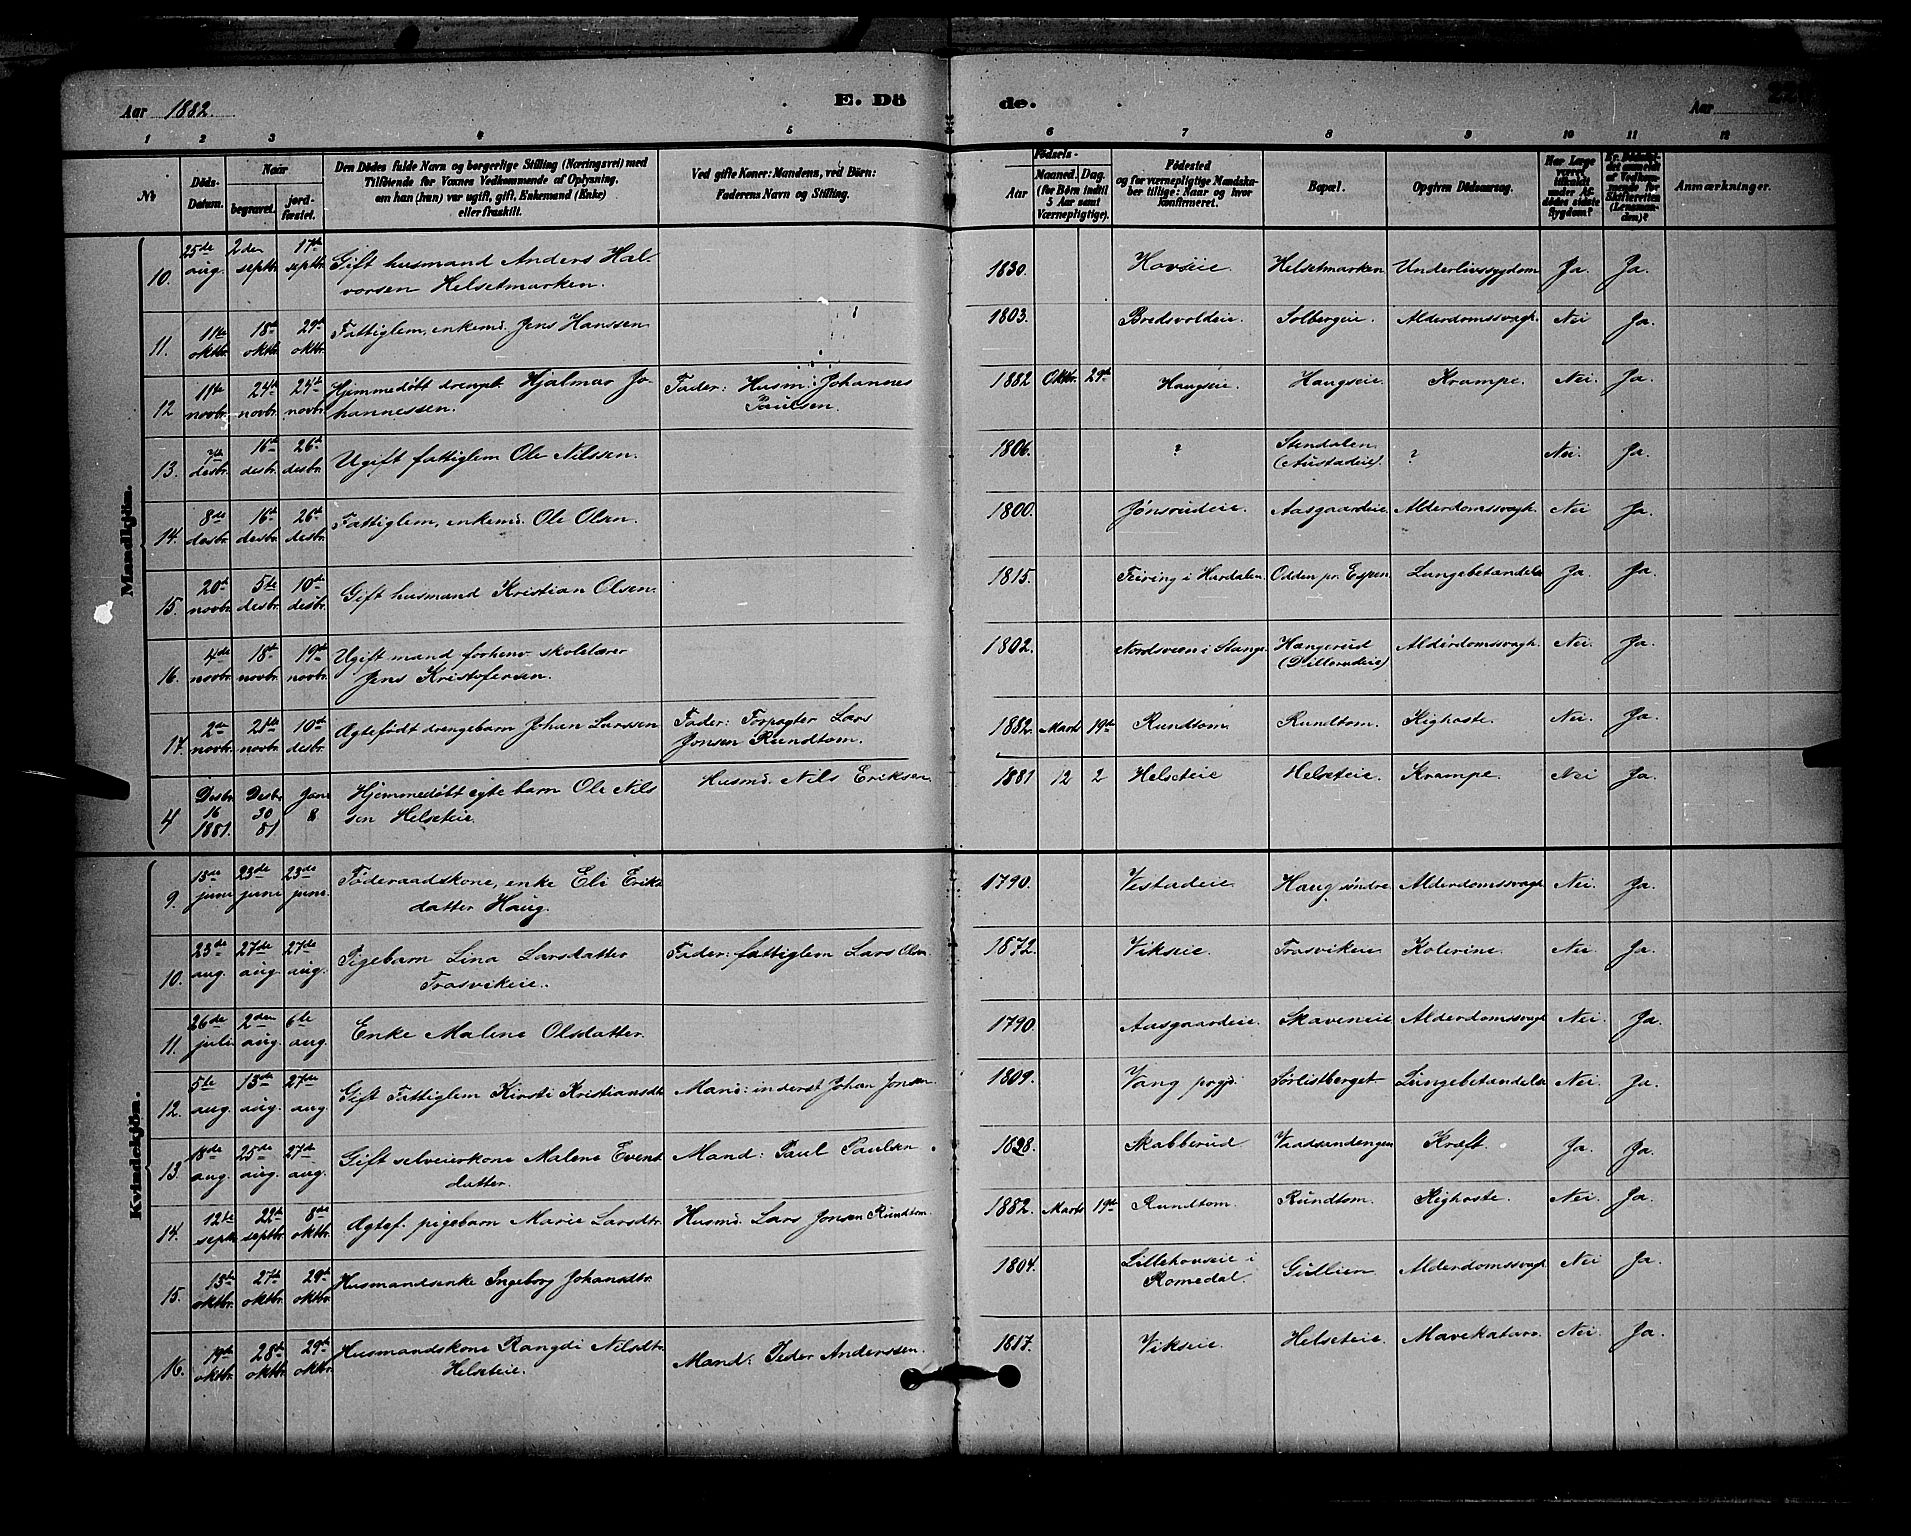 Aar 1882. E. Dö de. Aar
1 2 3 4 5 6 7 8 9 10 11 12
№ Döds-Datum. Naar begravet. jordfæstet. Den Dødes fulde Navn og borgerlige Stilling (Næringsvei) med Tilföiende for Voxnes Vedkommende af Oplysning, om han (hun) var ugift, gift, Enkemand (Enke) eller fraskilt. Ved gifte Koner: Mandens, ved Börn: Faderens Navn og Stilling. Födsels- Aar Maaned. Dag. (for Börn indtil 5 Aar samt Værnepligtige). Födested og for værnepligtige Mandskaber tillige: Naar og hvor konfirmeret. Bopæl. Opgiven Dödsaarsag. Har Læge været tilkaldt under Afdödes sidste Sygdom? Anmærkninger.
Mandkjön.
10. 25de aug. 2den septbr. 17de septbr. Gift husmand Anders Halvorsen Helsetmarken. 1830. Hovseie. Helsetmarken Underlivssygdom Ja. Ja.
11. 11te oktbr. 18de oktbr. 29de oktbr. Fattiglem, enkemd. Jens Hanssen 1803. Bredsvoldeie. Solbergeie. Alderdomssvagh. Nei Ja.
12 11te novbr. 24de novbr. 24de novbr. Hjemmedøbt drengeb. Hjalmar Johannessen. Fader: Husm: Johannes Paulsen. 1882 Oktbr. 29de Haugseie. Haugseie. Krampe. Nei. Ja.
13. 7de desbr. 16de desbr. 26de desbr. Ugift fattiglem Ole Nilssen. 1806. ? Stendalen (Austadeie). ? Nei. Ja.
14. 8de desbr. 16de desbr. 26de desbr. Fattiglem, enkemd. Ole Olsen. 1800. Jønsrudeie. Aasgaardeie Alderdomssvagh. Nei Ja.
15. 20de novbr. 5te desbr. 10de desbr. Gift husmand Kristian Olsen. 1815. Feiring i Hurdalen. Odden pr. Espen Lungebetændelse Ja. Ja.
16. 4de novbr. 18de novbr. 19de novbr. Ugift mand forhenv. skolelærer Jens Kristofersen. 1802. Nordsveen i Stange. Haugerud Alderdomssvagh. Nei. Ja.
17. 2de novbr. 21de novbr. 10de desbr. Ægtefødt drengebarn Johan Larssen Fader: Forpagter Lars Jonsen Rundtom. 1882. Marts 19de Rundtom. Rundtom. Kighoste. Nei. Ja.
4 Desbr 16 1881. Desbr 30 81. Janr 8 Hjemmedøbt egte barn Ole Nilssen Helseteie. Husmd. Nils Eriksen 1881 12 2 Helseteie Helseteie. Krampe Nei Ja.
Kvindekjön.
9. 15de juni 23de juni 23de juni. Føderaadskone, enke Eli Eriksdatter Haug. 1790. Vestadeie Haug søndre Alderdomssvagh Nei. Ja.
10. 23de aug. 27de aug. 27de aug. Pigebarn Lina Larsdatter Frosvikeie. Fader: fattiglem Lars Olsen 1872. Vikseie. Frosvikeie. Kolerine Nei Ja.
11. 26de juli 2den aug. 6te aug. Enke Malene Olsdatter. 1790. Aasgaardeie. Skaveneie Alderdomssvagh Nei. Ja.
12. 5te aug. 13de aug. 27de aug. Gift Fattiglem Kirsti Kristiansdtr Mand: inderst Johan Jonsen. 1809. Vang prgjd. Sørlistberget Lungebetændelse Nei. Ja.
13. 18de aug. 25de aug. 27de aug. Gift selveierkone Malene Eventdatter. Mand: Paul Paulsen. 1828. Skabberud Vaadsandengen Kræft. Ja. Ja.
14. 12te septbr. 22de septbr. 8de oktbr. Ægtef. pigebarn Marie Larsdtr. Husmd. Lars Jonsen Rundtom. 1882. Marts 19de Rundtom. Rundtom. Kighoste. Nei. Ja.
15. 15de oktbr. 27de oktbr. 29de oktbr. Husmandsenke Ingeborg Johansdtr. 1804. Lillehovseie i Romedal. Gullien. Alderdomssvagh Nei Ja.
16. 19de oktbr. 28de oktbr. 29de oktbr. Husmandskone Rangdi Nilsdtr. Helseteie. Mand: Peder Anderssen. 1817. Vikseie. Helseteie. Mavekatarr. Nei Ja.